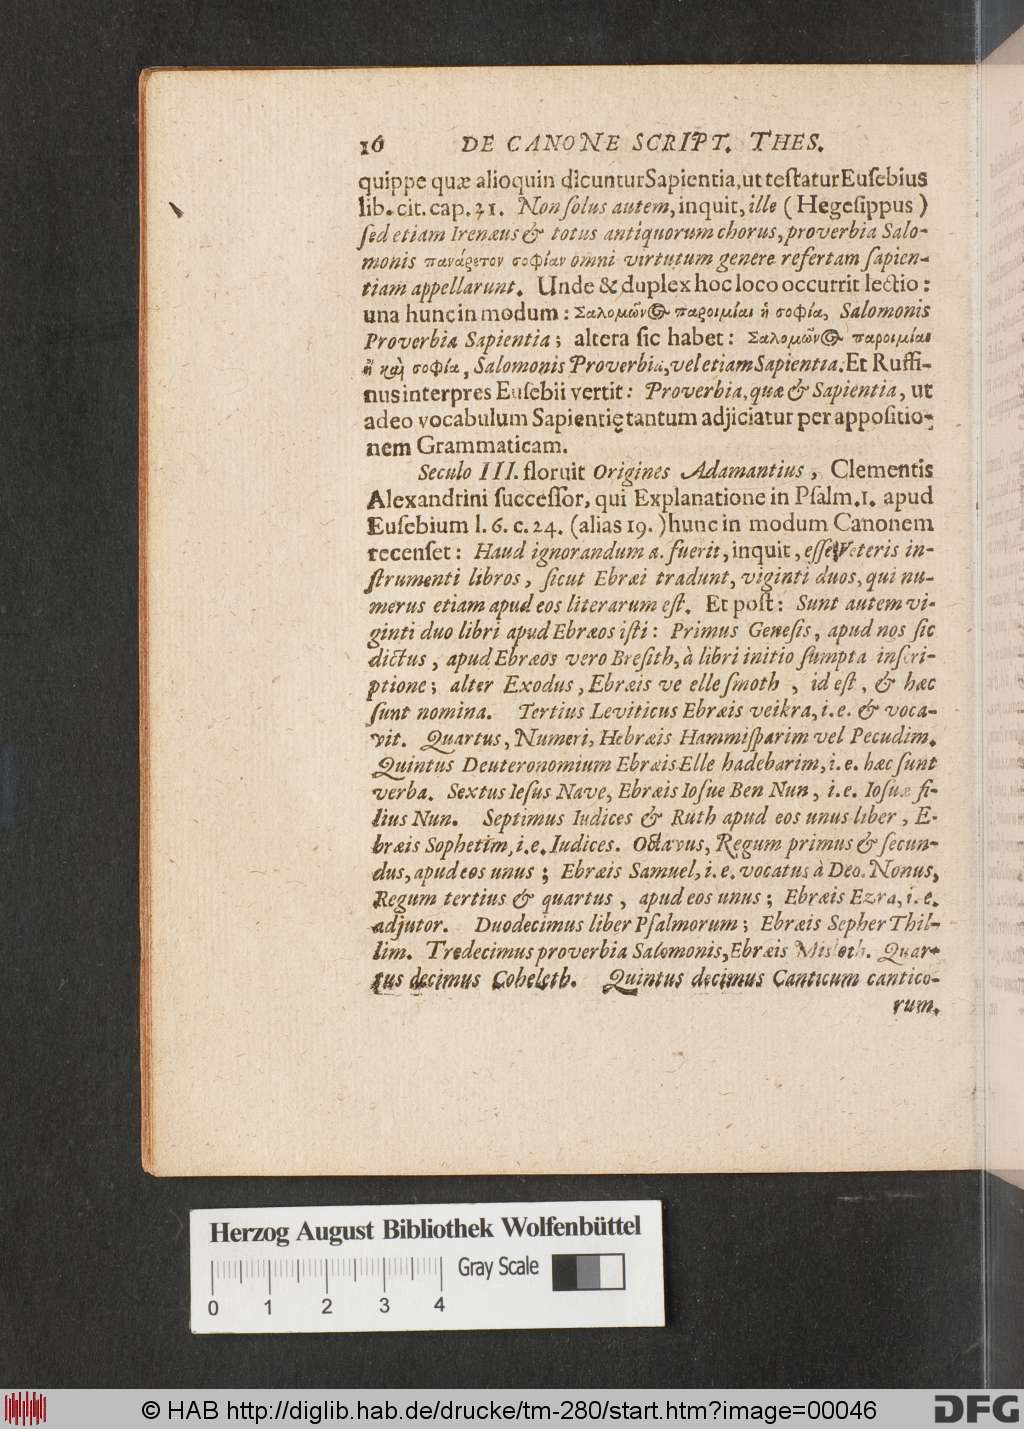 16 DE CANONE SCRIPT. THES.
quippe quæ alioquin dicuntur Sapientia, ut testatur Eusebius
lib. cit. cap. 31. Non solus autem, inquit, ille (Hegesippus)
sed etiam Irenæus & totus antiquorum chorus, proverbia Salo-
monis πανάρετον σοφίαν omni virtutum genere refertam sapien-
tiam appellarunt. Unde & duplex hoc loco occurrit lectio:
una hunc in modum: Σαλομῶν🙰 παροιμίαι ἡ σοφία, Salomonis
Proverbia Sapientia; altera sic habet: Σαλομῶν🙰 παροιμίαι
ἢ καὶ σοφία, Salomonis Proverbia, vel etiam Sapientia. Et Ruffi-
nus interpres Eusebii vertit: Proverbia, quæ & Sapientia, ut
adeo vocabulum Sapientię tantum adjiciatur per appositio-
nem Grammaticam.
Seculo III. floruit Origines Adamantius, Clementis
Alexandrini successor, qui Explanatione in Psalm. 1. apud
Eusebium l. 6. c. 24. (alias 19.) hunc in modum Canonem
recenset: Haud ignorandum a. fuerit, inquit, esse Veteris in-
strumenti libros, sicut Ebræi tradunt, viginti duos, qui nu-
merus etiam apud eos literarum est. Et post: Sunt autem vi-
ginti duo libri apud Ebræos isti: Primus Genesis, apud nos sic
dictus, apud Ebræos vero Bresith, à libri initio sumpta inscri-
ptione; alter Exodus, Ebræis ve elle smoth, id est, & hæc
sunt nomina. Tertius Leviticus Ebræis veikra, i.e. & voca-
vit. Quartus, Numeri, Hebræis Hammisparim vel Pecudim.
Quintus Deuteronomium Ebræis Elle hadebarim, i.e. hæc sunt
verba. Sextus Iesus Nave, Ebræis Iosue Ben Nun, i.e. Iosuæ fi-
lius Nun. Septimus Iudices & Ruth apud eos unus liber, E-
bræis Sophetim, i.e. Iudices. Octavus, Regum primus & secun-
dus, apud eos unus; Ebræis Samuel, i.e. vocatus à Deo. Nonus,
Regum tertius & quartus, apud eos unus; Ebræis Ezra, i.e.
adjutor. Duodecimus liber Psalmorum; Ebræis Sepher Thil-
lim. Tredecimus proverbia Salomonis, Ebræis Misloth. Quar-
tus decimus Coheleth. Quintus decimus Canticum cantico-
rum.
Herzog August Bibliothek Wolfenbüttel
Gray Scale
0 1 2 3 4
© HAB http://diglib.hab.de/drucke/tm-280/start.htm?image=00046
DFG